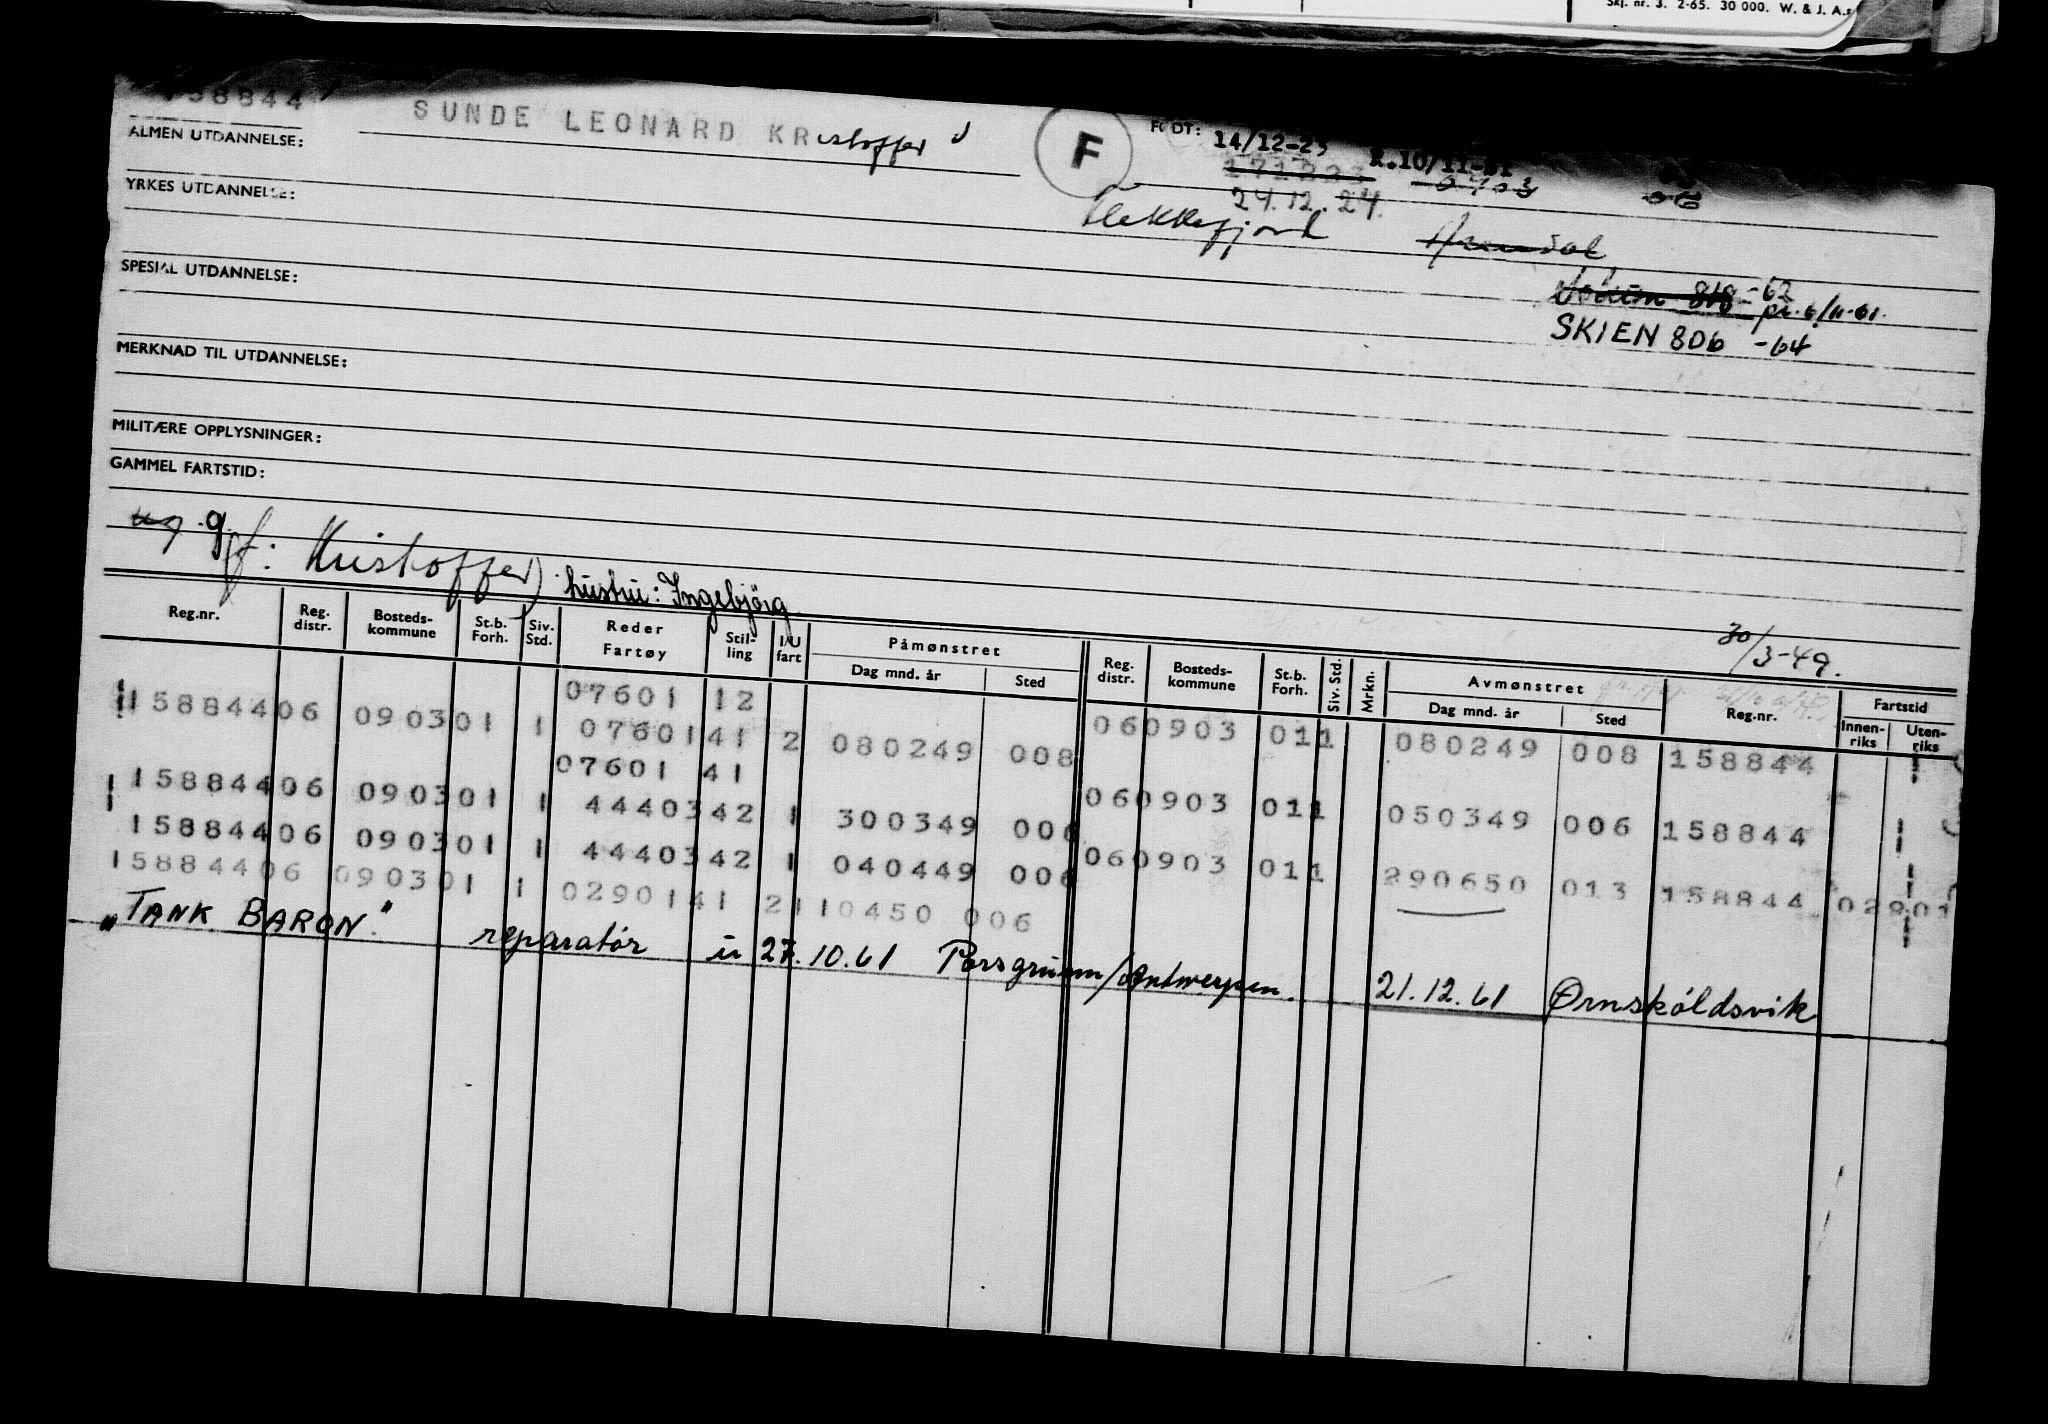 Skj. nr. 3. 2-65. 30 000. W. & J. A.s
158844
SUNDE LEONARD KRistoffer
F
FØDT: 14/12-23 R.10/11-21
ALMEN UTDANNELSE:
24.12.24.
YRKES UTDANNELSE:
Flekkefjord Arendal
SPESIAL UTDANNELSE:
818 -62
pr. 6/11-61.
SKIEN 806 -64
MERKNAD TIL UTDANNELSE:
MILITÆRE OPPLYSNINGER:
GAMMEL FARTSTID:
ug g
f: Kristoffer) hustru: Ingebjørg.
30/3-49.
Reg.nr. Reg. distr. Bosteds-kommune St.b. Forh. Siv. Std. Reder Fartøy Stil-ling I/U fart Påmønstret Dag mnd. år Sted Reg. distr. Bosteds-kommune St.b. Forh. Siv. Std. Mrkn. Avmønstret Dag mnd. år Sted Reg.nr. Fartstid Innen-riks Uten-riks
07601 12
158844 06 0903 01 1 07601 41 2 080249 008 06 0903 01 1 080249 008 158844
07601 41
158844 06 0903 01 1 44403 42 1 300349 006 06 0903 01 1 050349 006 158844
158844 06 0903 01 1 44403 42 1 040449 006 06 0903 01 1 290650 013 158844 02901
158844 06 0903 01 1 02901 41 2 110450 006
"TANK BARON" reparatør u 27.10.61 Porsgrunn/Antwerpen. 21.12.61 Ørnsköldsvik